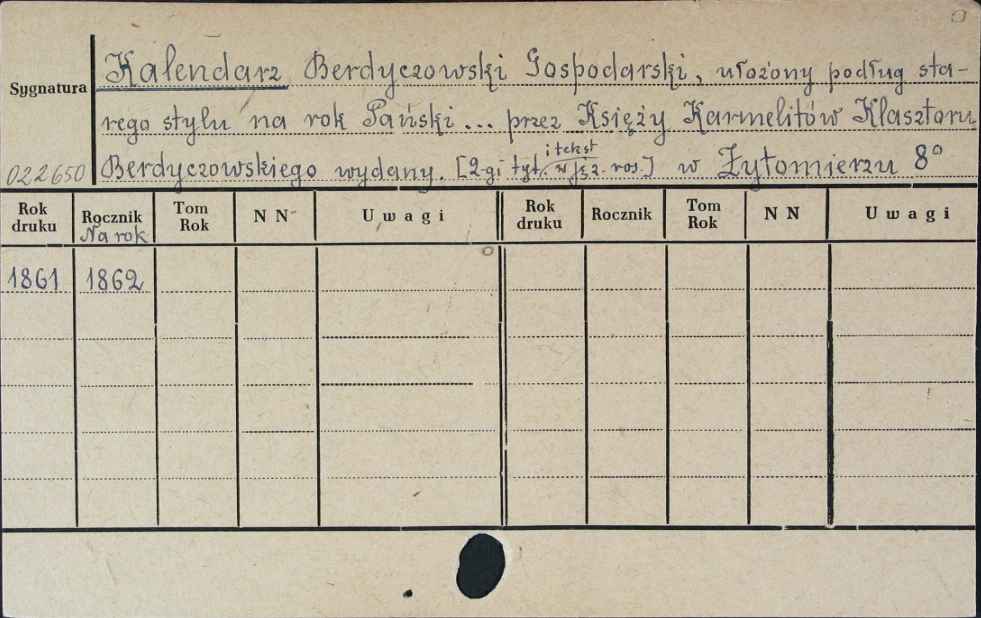 Kalendarz Berdyczowski Gospodarski, ułożony podług sta-
Sygnatura
rego stylu na rok Pański ... przez Księży Karmelitów Klasztoru
i tekst
022650 Berdyczowskiego wydany. [2-gi tyt. w jęz. ros.] w Żytomierzu 8°
Rok druku Rocznik Tom Rok NN Uwagi Rok druku Rocznik Tom Rok NN Uwagi
Na rok
1861 1862